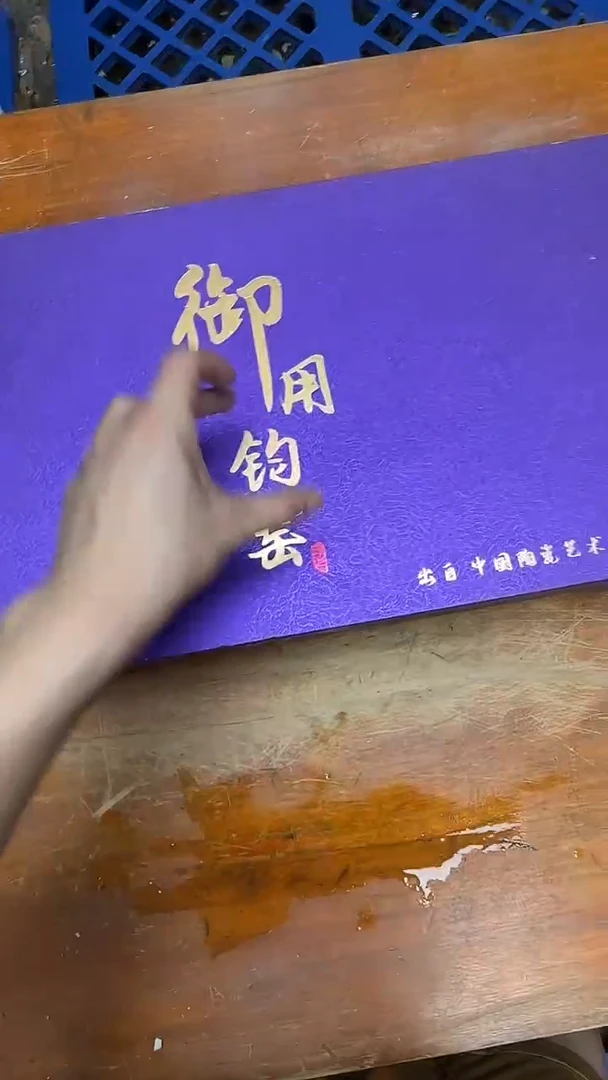 御用钧瓷
出自 中国陶瓷艺术